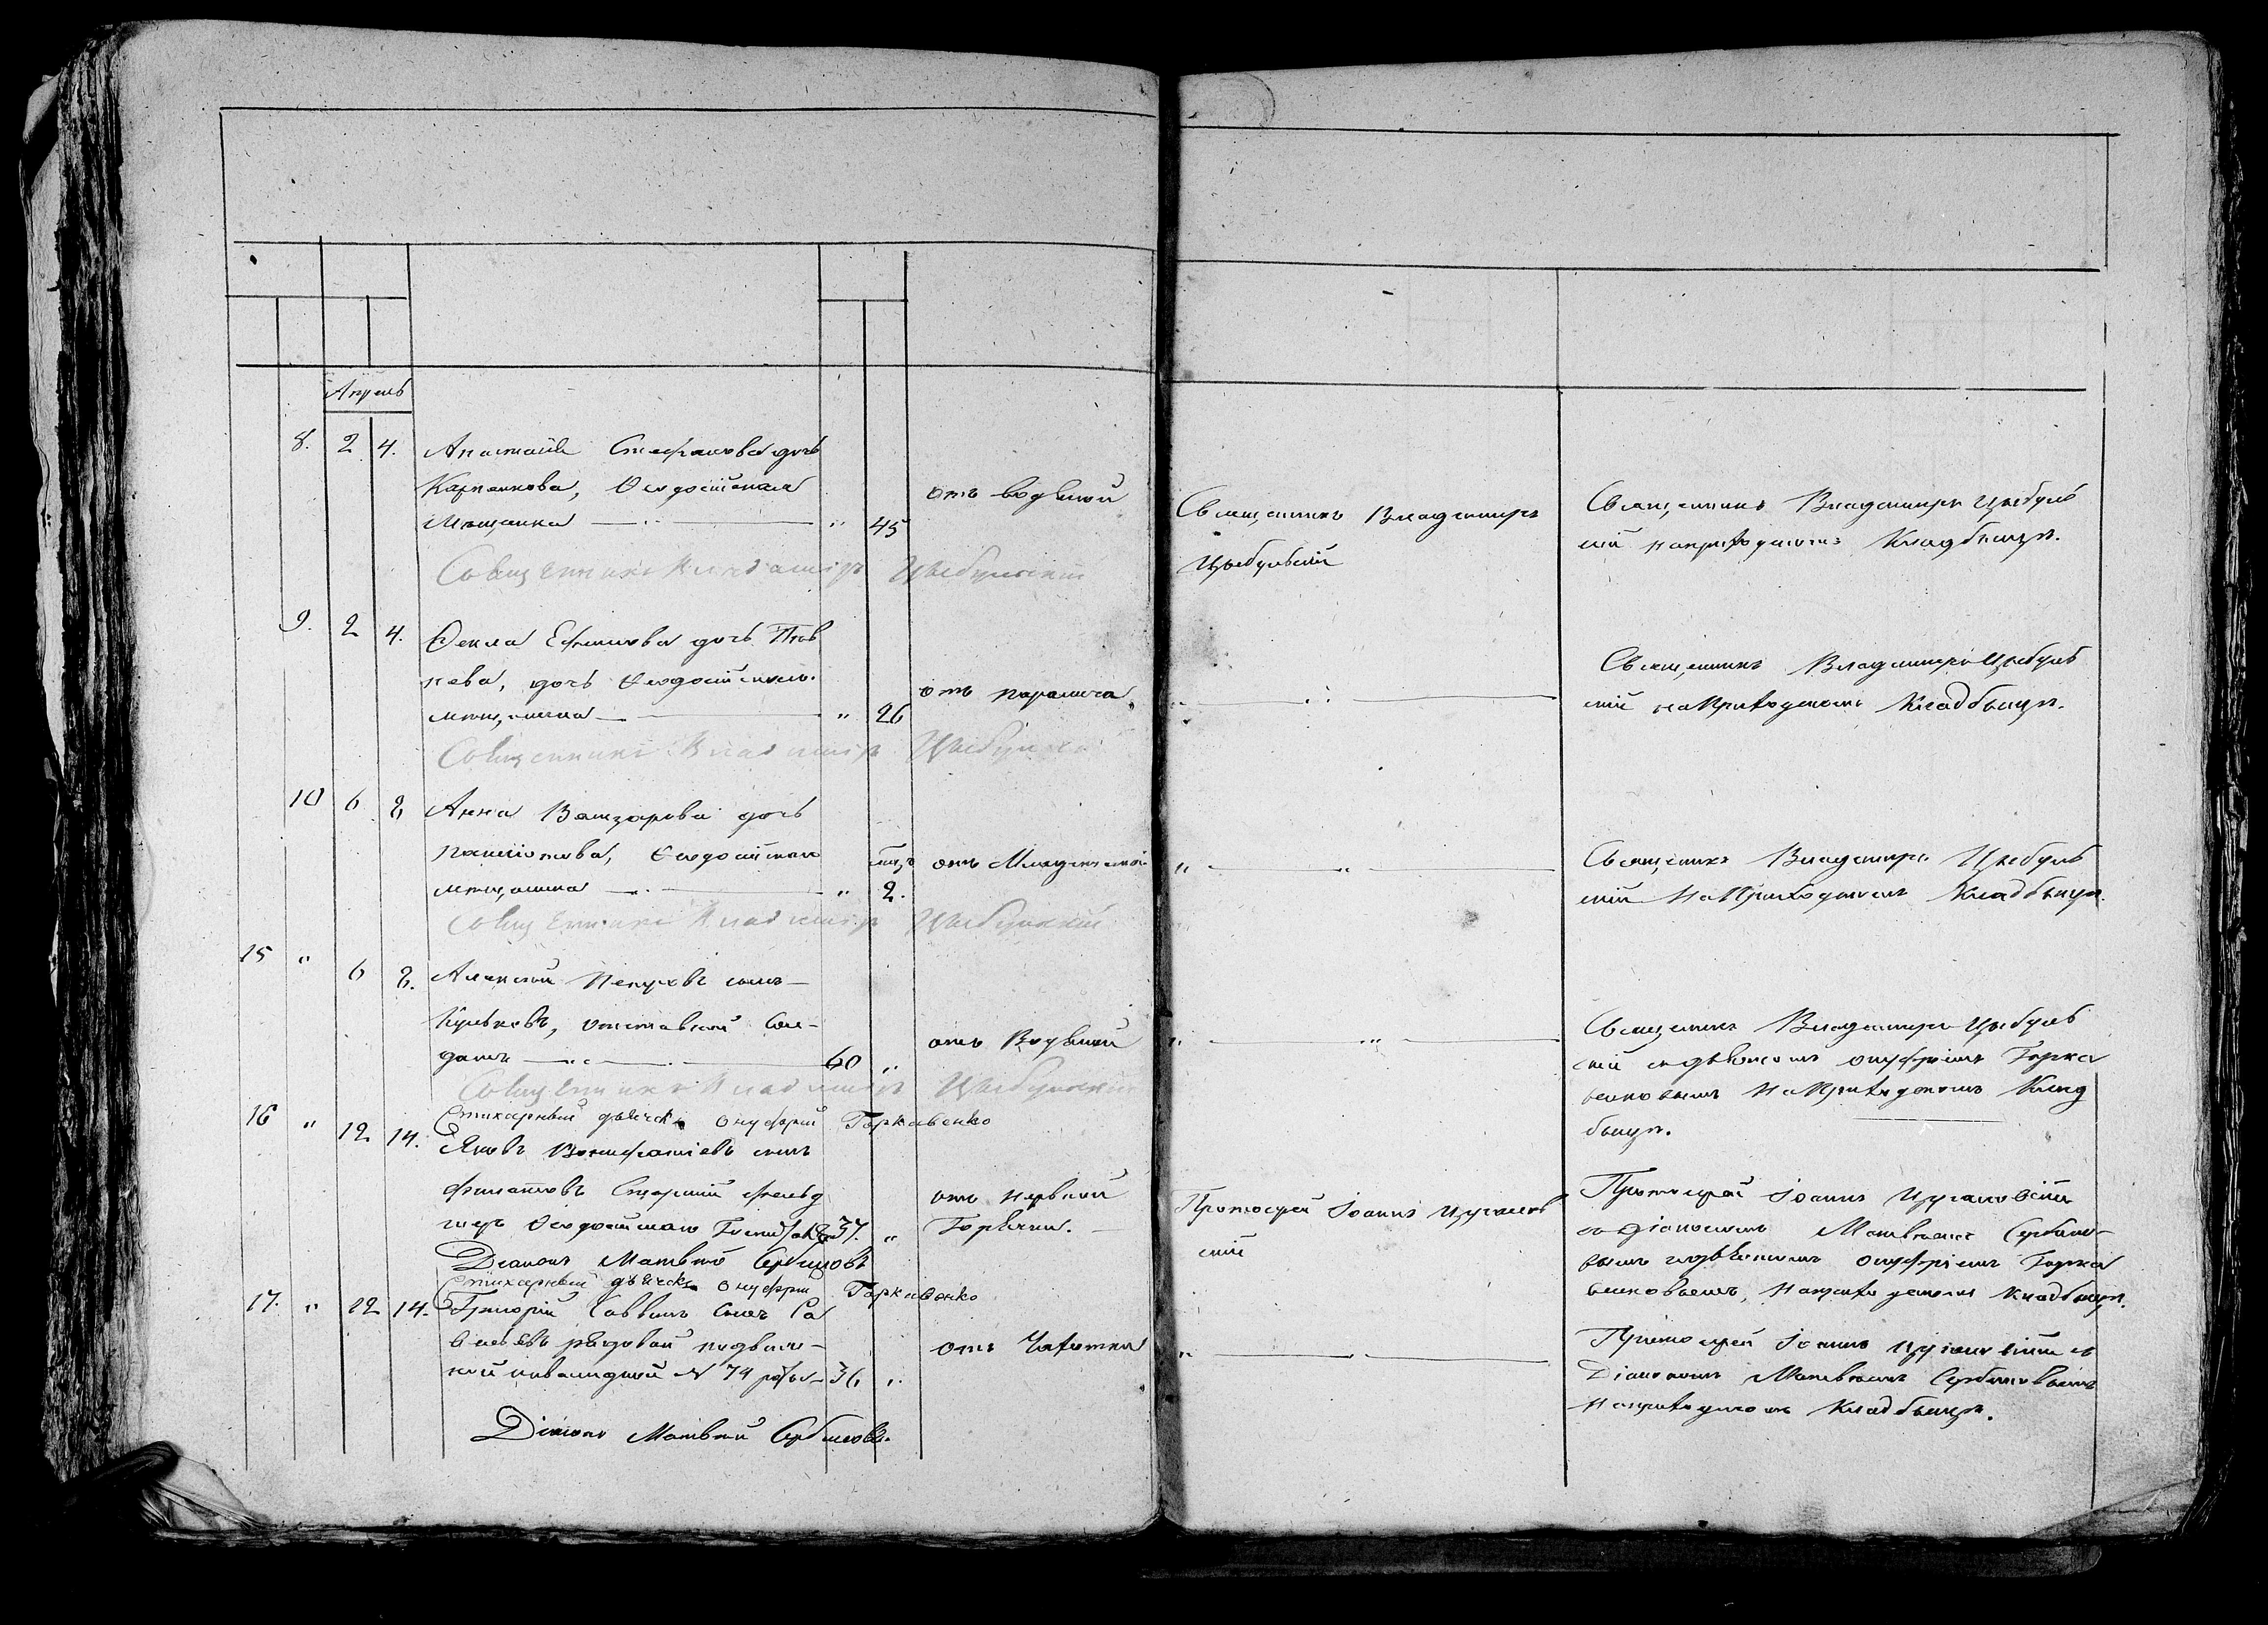 Апрель
8. 2 4. Анастасія Стефанова дочь
Карпенкова, Ѳеодосійская
Мѣщанка " 45
отъ водяной
Священникъ Владимиръ
Цыбульскій
Священникъ Владимиръ Цыбуль
скій на приходскомъ Кладбищѣ.
Священникъ Владимиръ Цыбульскій
9. 2 4. Ѳекла Ефимова дочь
нова, дочь Ѳеодосійскаго
мѣщанина " 26
отъ паралича
" "
Священникъ Владимиръ Цыбуль
скій на Приходскомъ Кладбищѣ.
Священникъ Владимиръ Цыбульскій
10 6 8 Анна дочь
Ѳеодосійская
мѣщанка " мѣс. 2.
отъ Младенческой
" "
Священникъ Владимиръ Цыбуль
скій на Приходскомъ Кладбищѣ.
Священникъ Владимиръ Цыбульскій
15 " 6 8. Алексѣй Петровъ сынъ
Кульковъ, отставной Сол-
датъ 60 "
отъ Водяной
" "
Священникъ Владимиръ Цыбуль
скій съ дьячкомъ Онуфріемъ Горка
венковымъ на Приходскомъ Клад
бищѣ.
Священникъ Владимиръ Цыбульскій
Стихарный дьячекъ Онуфрій Горкавенко
16 " 12 14. Яковъ Вонифатіевъ сынъ
Филатовъ Старшій фельд
шеръ Ѳеодосійскаго Госпиталя 37. "
отъ нервной
Горячки.
Протоіерей Іоаннъ Цугановс
кій
Протоіерей Іоаннъ Цугановскій
съ Діакономъ Матвѣемъ Сербино-
вымъ и дьячкомъ Онуфріемъ Горка
венковымъ, на приходскомъ кладбищѣ.
Діаконъ Матвѣй Сербиновъ
Стихарный дьячекъ Онуфрій Горкавенко
17. " 12 14. Григорій Саввинъ сынъ Са
вельевъ рядовой подвиж-
ной инвалидной № 74 роты 36 "
отъ Чахотки
" "
Протоіерей Іоаннъ Цугановскій съ
Діакономъ Матвѣемъ Сербиновымъ
на приходскомъ Кладбищѣ.
Діаконъ Матвѣй Сербиновъ.